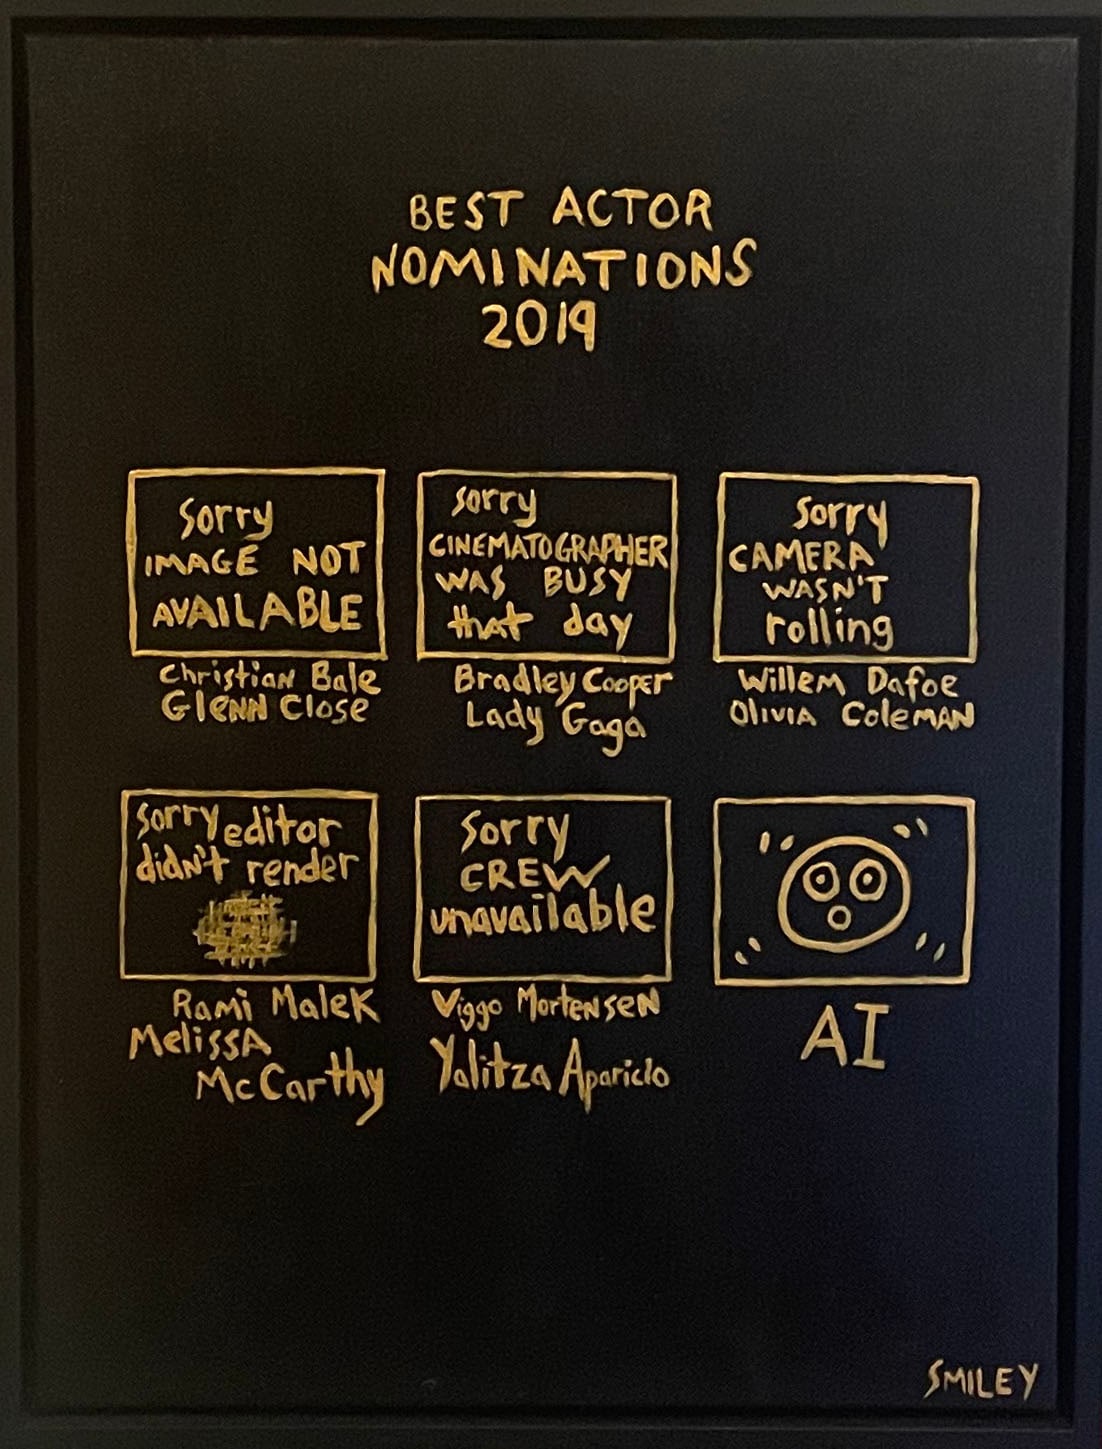 BEST ACTOR
NOMINATIONS
2019
Sorry
IMAGE NOT
AVAILABLE
Christian Bale
Glenn Close
Sorry
CINEMATOGRAPHER
WAS BUSY
that day
Bradley Cooper
Lady Gaga
Sorry
CAMERA
WASN'T
rolling
Willem Dafoe
Olivia Coleman
Sorry editor
didn't render
Rami Malek
Melissa
McCarthy
Sorry
CREW
unavailable
Viggo Mortensen
Yalitza Aparicio
AI
SMILEY